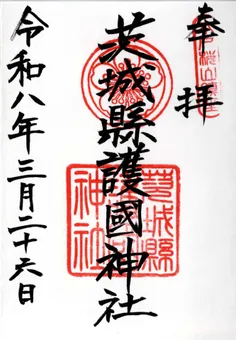 奉拝
茨城縣護國神社
茨城縣
護國
神社
令和八年三月二十六日